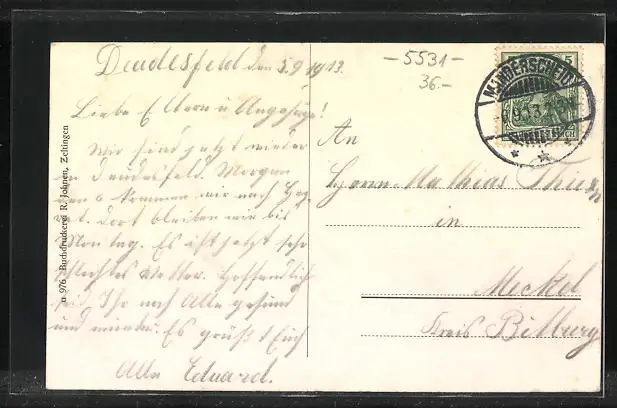 Deudesfeld den 5.9.1913.
Liebe Eltern u Angehörige!
Wir sind jetzt wieder
in Deudesfeld. Morgen
den 6 kommen wir nach
Dort bleiben wir bis
Montag. Es ist jetzt sehr
schlechtes Wetter. Hoffentlich
seid Ihr noch Alle gesund
und munter. Es grüßt Euch
Alle Eduard.
a 976 Buchdruckerei R. Johnen, Zeltingen
-5531-
36.-
MANDERSCHEID
5
An
Herrn Mathias
in
Meckel
Kreis Bitburg